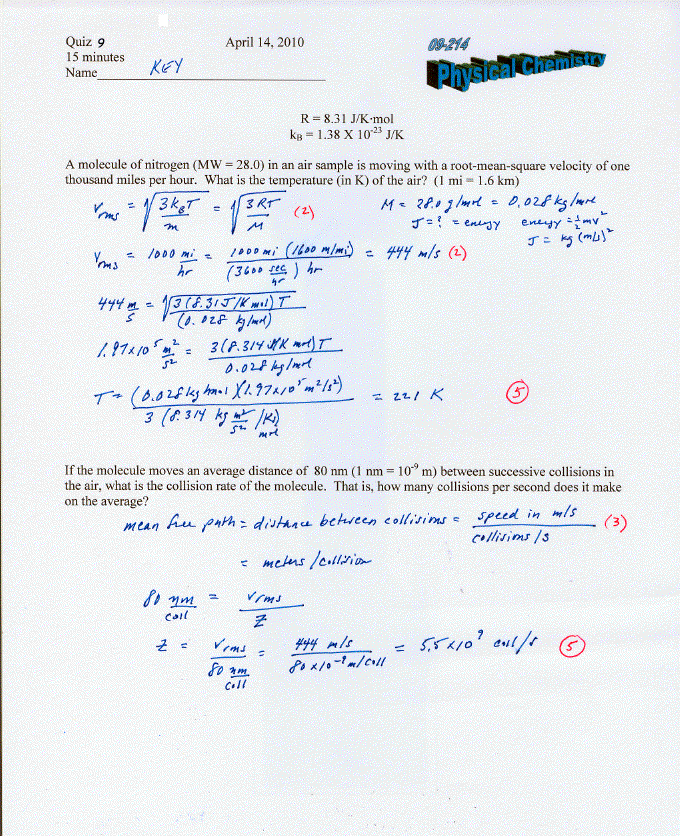 Quiz 9 April 14, 2010 09-214
15 minutes Physical Chemistry
Name KEY
R = 8.31 J/K·mol
kB = 1.38 X 10⁻²³ J/K
A molecule of nitrogen (MW = 28.0) in an air sample is moving with a root-mean-square velocity of one
thousand miles per hour. What is the temperature (in K) of the air? (1 mi = 1.6 km)
Vrms = √(3kBT / m) = √(3RT / M) (2) M = 28.0 g/mol = 0.028 kg/mol
J = ? = energy energy = ½mv²
J = kg (m/s)²
Vrms = 1000 mi/hr = 1000 mi (1600 m/mi) / (3600 sec/hr) hr = 444 m/s (2)
444 m/s = √(3(8.31 J/K mol)T / (0.028 kg/mol))
1.97x10⁵ m²/s² = 3(8.314 J/K mol)T / 0.028 kg/mol
T = (0.028 kg/mol)(1.97x10⁵ m²/s²) / 3(8.314 kg m²/s² /K mol) = 221 K (5)
If the molecule moves an average distance of 80 nm (1 nm = 10⁻⁹ m) between successive collisions in
the air, what is the collision rate of the molecule. That is, how many collisions per second does it make
on the average?
mean free path = distance between collisions = speed in m/s / collisions/s (3)
= meters/collision
80 nm/coll = Vrms / Z
Z = Vrms / 80 nm/coll = 444 m/s / 80 x10⁻⁹ m/coll = 5.5 x10⁹ coll/s (5)